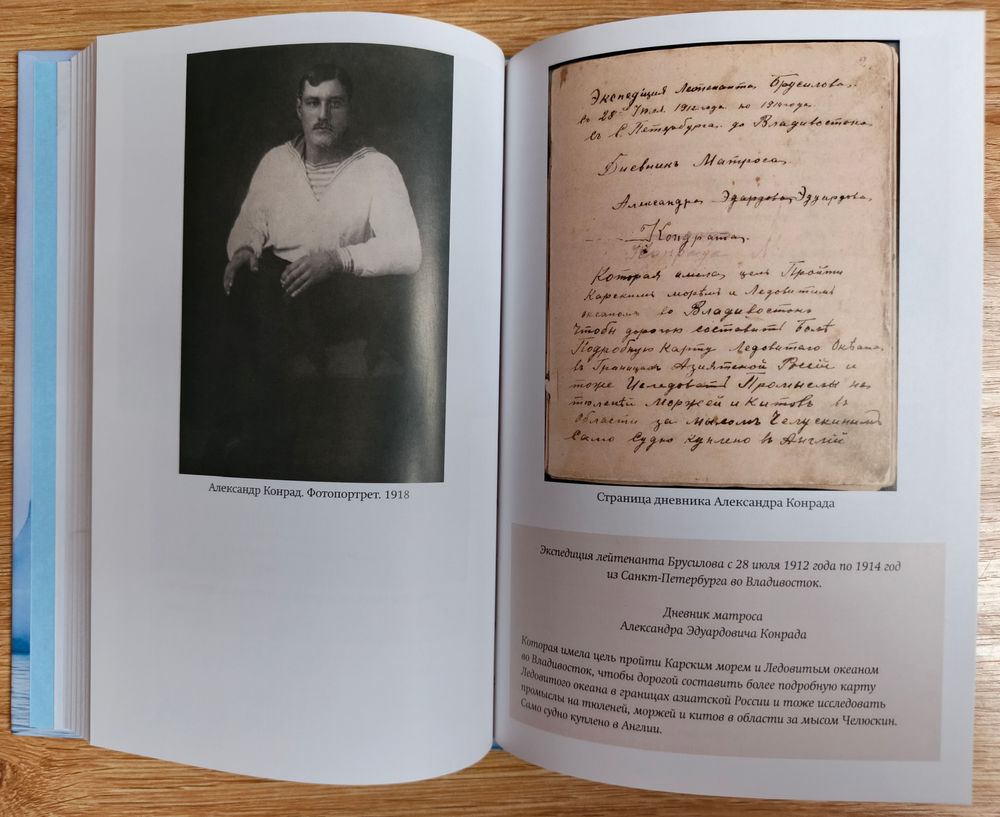 Александр Конрад. Фотопортрет. 1918
Экспедиция Лейтенанта Брусилова.
съ 28 Июля 1912 года по 1914 года.
съ С. Петербурга до Владивостока
Дневникъ Матроса
Александра Эдардова Эдуардова
Кондрата
Которая имела цель Пройти
Карскимъ моремъ и Ледовитимъ
океаномъ во Владивостокъ
Чтобы дорогою составить Болѣ
Подробную Карту Ледовитаго Океана
въ Границахъ Азиятской Росіи и
тоже Иследовать Промыслы на
тюленей Моржей и Китовъ въ
Области за мысомъ Челускинымъ
Само Судно куплено в Англій
Страница дневника Александра Конрада
Экспедиция лейтенанта Брусилова с 28 июля 1912 года по 1914 год
из Санкт-Петербурга во Владивосток.
Дневник матроса
Александра Эдуардовича Конрада
Которая имела цель пройти Карским морем и Ледовитым океаном
во Владивосток, чтобы дорогой составить более подробную карту
Ледовитого океана в границах азиатской России и тоже исследовать
промыслы на тюленей, моржей и китов в области за мысом Челюскин.
Само судно куплено в Англии.